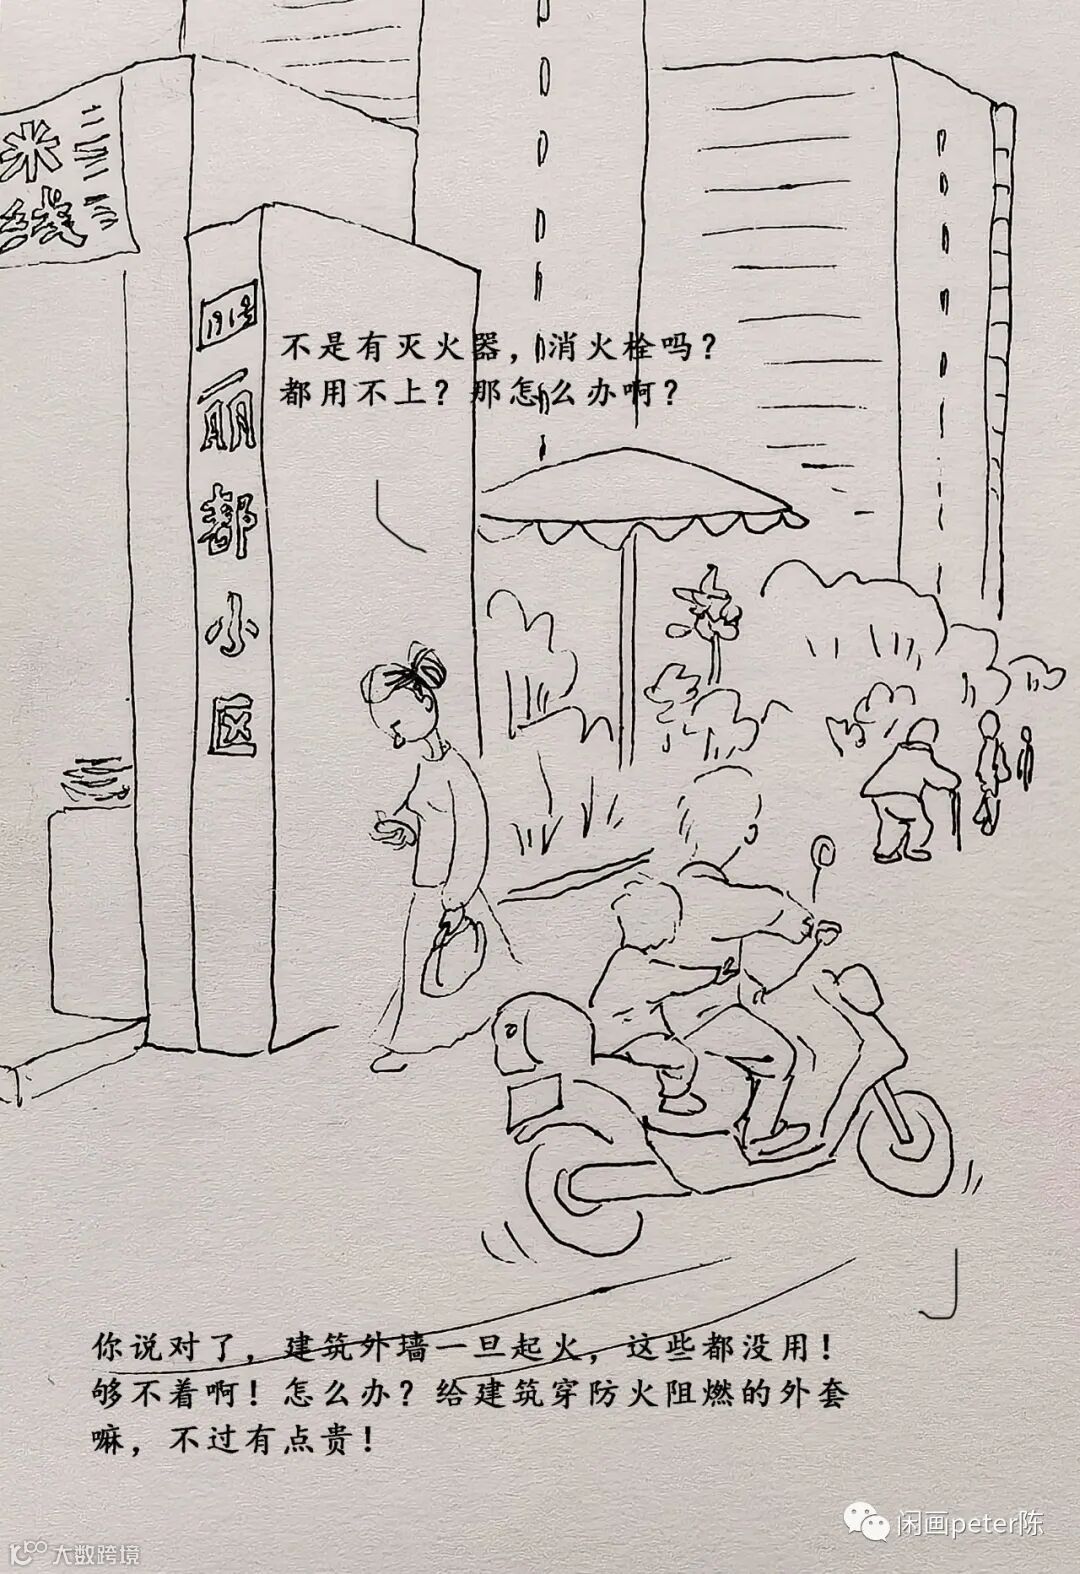 米线
四丽都小区
不是有灭火器，消火栓吗？
都用不上？那怎么办啊？
你说对了，建筑外墙一旦起火，这些都没用！
够不着啊！怎么办？给建筑穿防火阻燃的外套
嘛，不过有点贵！
闲画peter陈
大数跨境